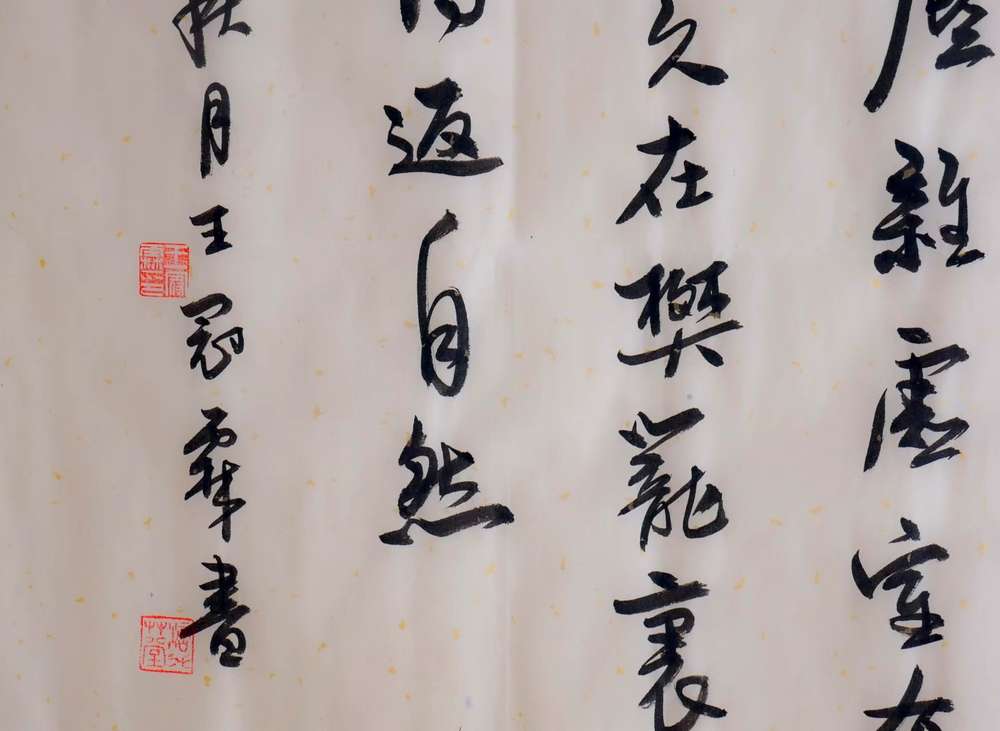 塵雜虛室有
久在樊籠裏
得返自然
秋月王冠霖書